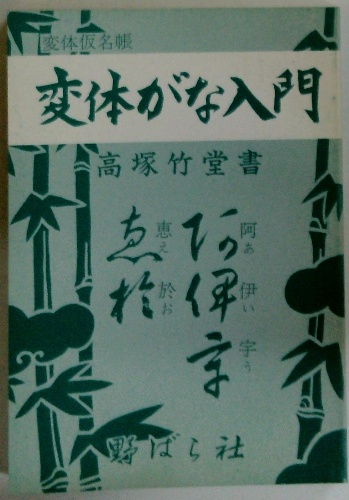 変体仮名帳
変体がな入門
高塚竹堂書
阿伊宇
阿あ 伊い 宇う
恵於
恵え 於お
野ばら社